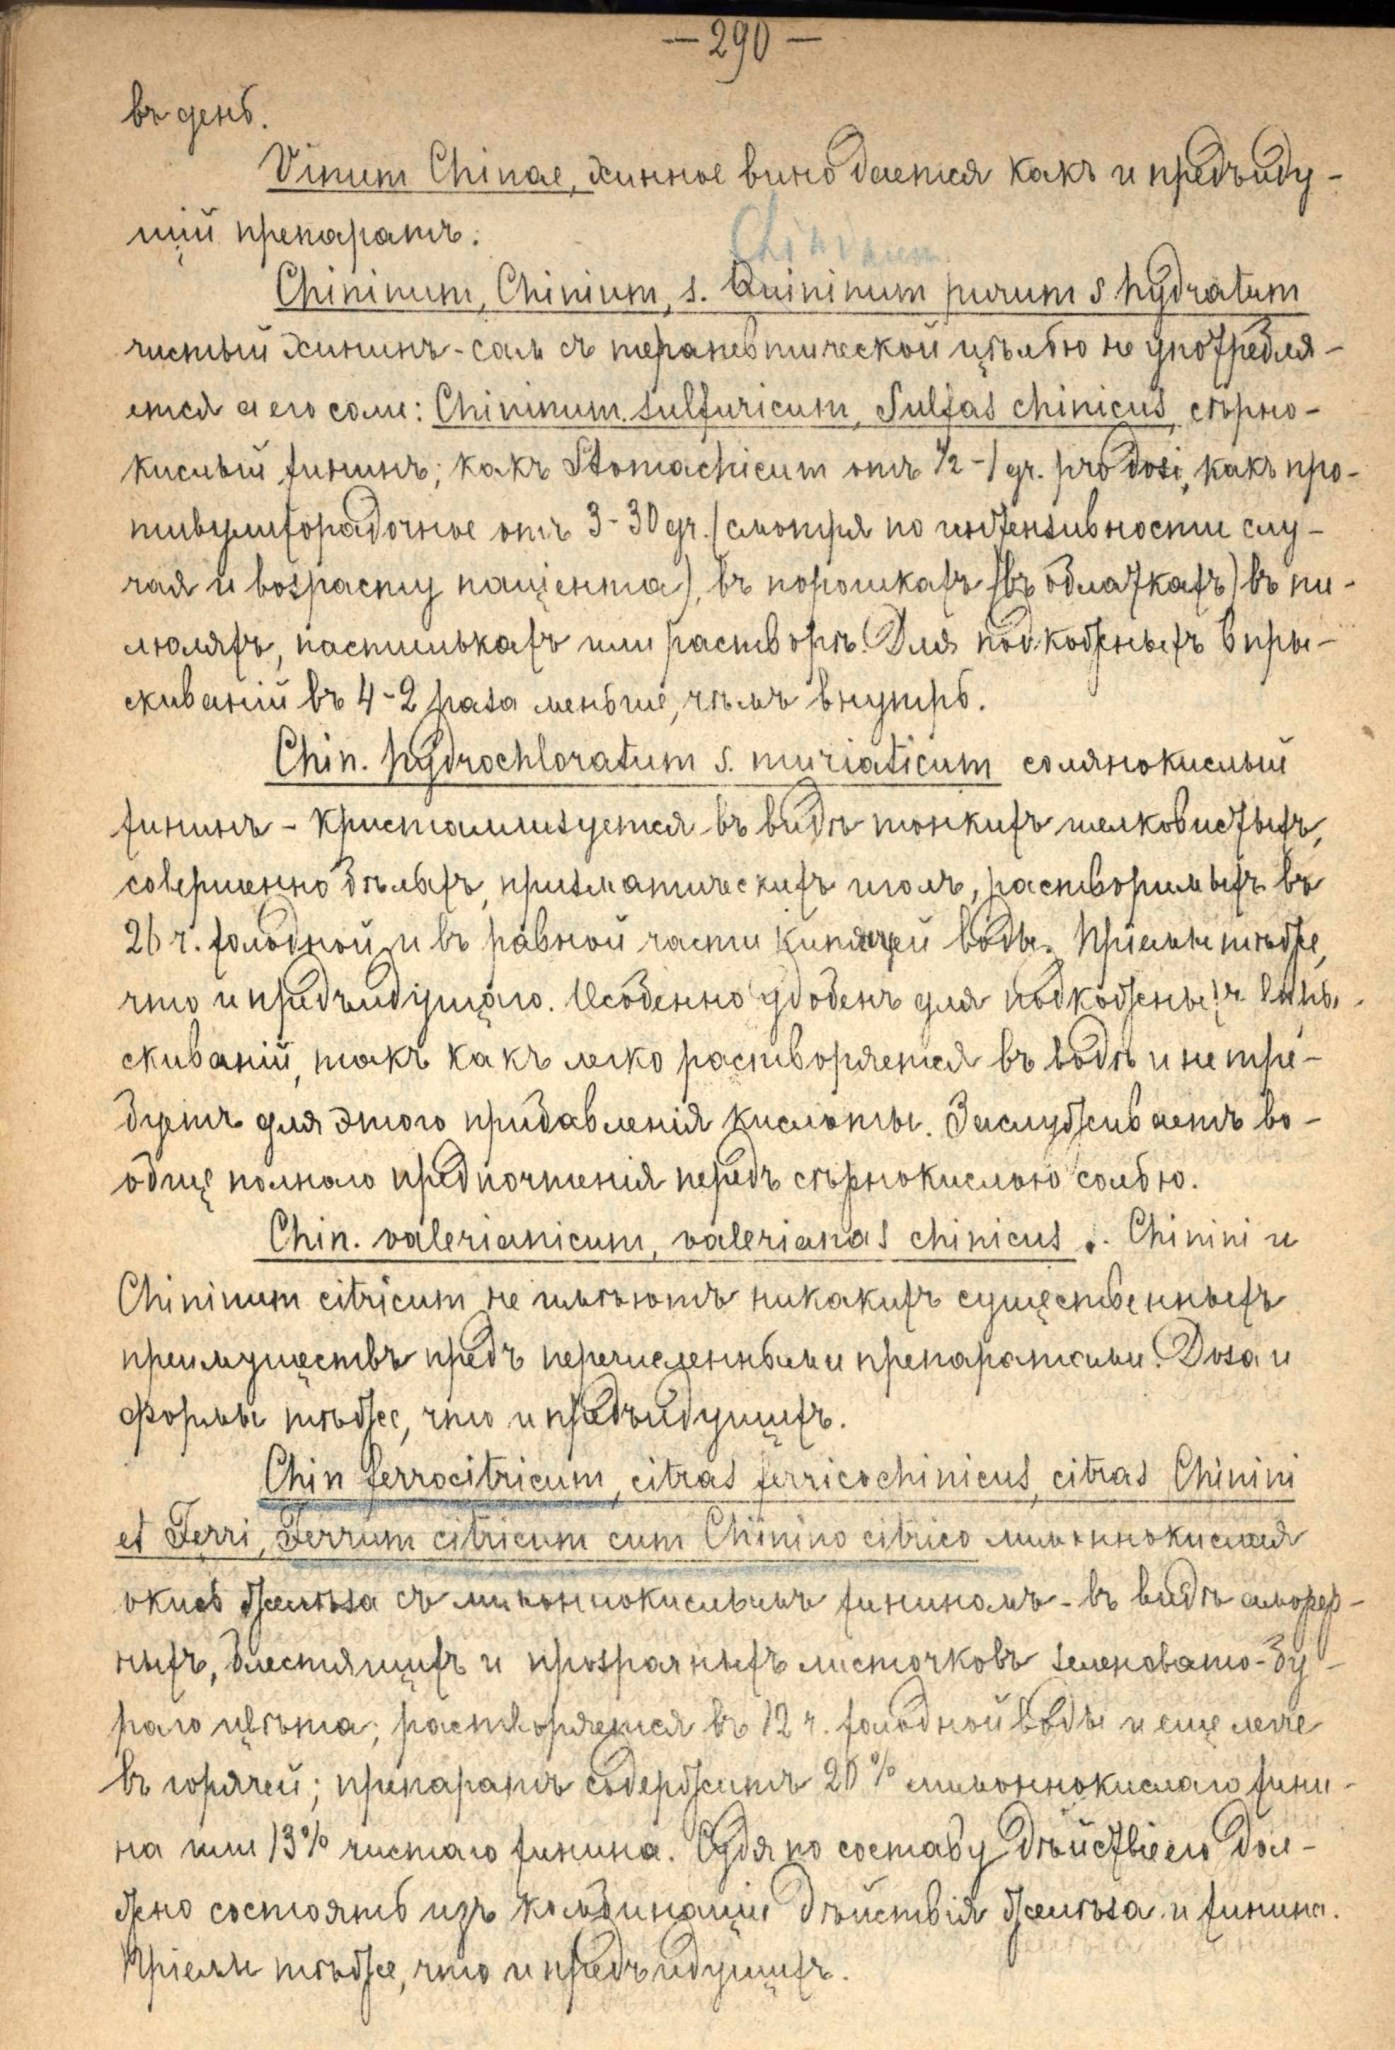 — 290 —
въ день.
Vinum Chinae, хинное вино дается какъ и предъиду-
щій препаратъ.
Chininum
Chininum, Chinium, s. Quininum purum s hydratum
чистый хининъ - самъ съ терапевтической цѣлью не употребля-
ется а его соли: Chininum sulfuricum, Sulfas chinicus, сѣрно-
кислый хининъ; какъ Stomachicum отъ 1/2 - 1 gr. pro dosi, какъ про-
тивулихорадочное отъ 3-30 gr. (смотря по интензивности слу-
чая и возрасту паціента), въ порошкахъ (въ облаткахъ) въ пи-
люляхъ, пастилькахъ или растворѣ. Для подкожныхъ впры-
скиваній въ 4-2 раза меньше, чѣмъ внутрь.
Chin. hydrochloratum s. muriaticum солянокислый
хининъ - кристаллизуется въ видѣ тонкихъ шелковистыхъ,
совершенно бѣлыхъ, призматическихъ иголъ, растворимыхъ въ
26 ч. холодной и въ равной части кипящей воды. Пріемы тѣже,
что и предъидущаго. Особенно удобенъ для подкожныхъ впры-
скиваній, такъ какъ легко растворяется въ водѣ и не тре-
буетъ для этого прибавленія кислоты. Заслуживаетъ во-
обще полнаго предпочтенія передъ сѣрнокислою солью.
Chin. valerianicum, valerianas chinicus s. Chinini и
Chininum citricum не имѣютъ никакихъ существенныхъ
преимуществъ предъ перечисленными препаратами. Doза и
формы тѣже, что и предъидущихъ.
Chin ferrocitricum, citras ferricochinicus, citras Chinini
et Ferri, Ferrum citricum cum Chinino citrico лимоннокислая
окись желѣза съ лимоннокислымъ хининомъ - въ видѣ аморф-
ныхъ, блестящихъ и прозрачныхъ листочковъ зеленовато-бу-
раго цвѣта; растворяется въ 12 ч. холодной воды и еще легче
въ горячей; препаратъ содержитъ 20% лимоннокислаго хини-
на или 13% чистаго хинина. Судя по составу дѣйствіе его дол-
жно состоять изъ комбинаціи дѣйствія желѣза и хинина.
Пріемы тѣже, что и предъидущихъ.